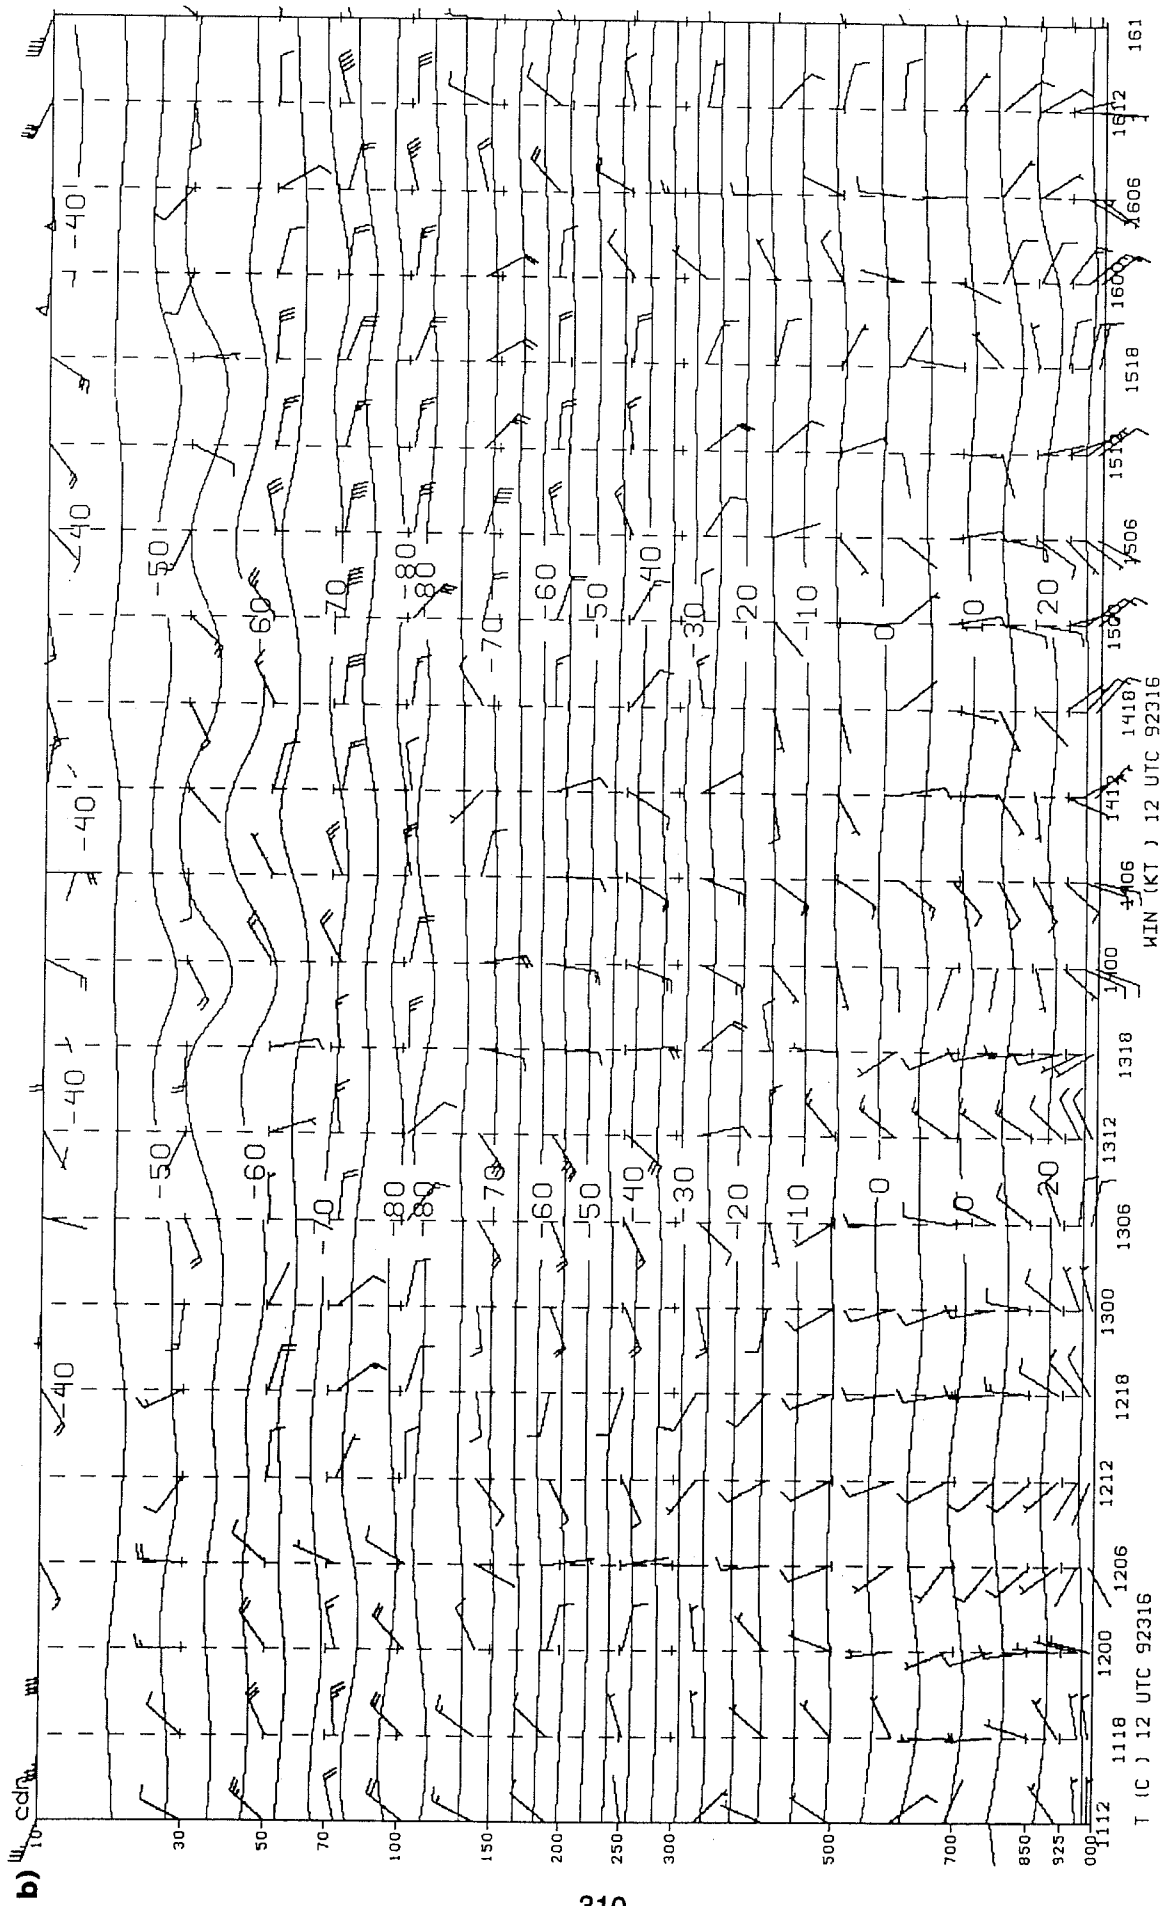 b)
cdn
10
30
50
70
100
150
200
250
300
500
700
850
925
00
-40 -40 -40 -40 -40
-50 -50
-60 -60
-70 -70
-80 -80
-80 -80
-70 -70
-60 -60
-50 -50
-40 -40
-30 -30
-20 -20
-10 -10
0 0
10
20 20
1112 1118 1200 1206 1212 1218 1300 1306 1312 1318 1400 1406 1412 1418 1500 1506 1512 1518 1600 1606 1612 161
T (C ) 12 UTC 92316
WIN (KT ) 12 UTC 92316
310